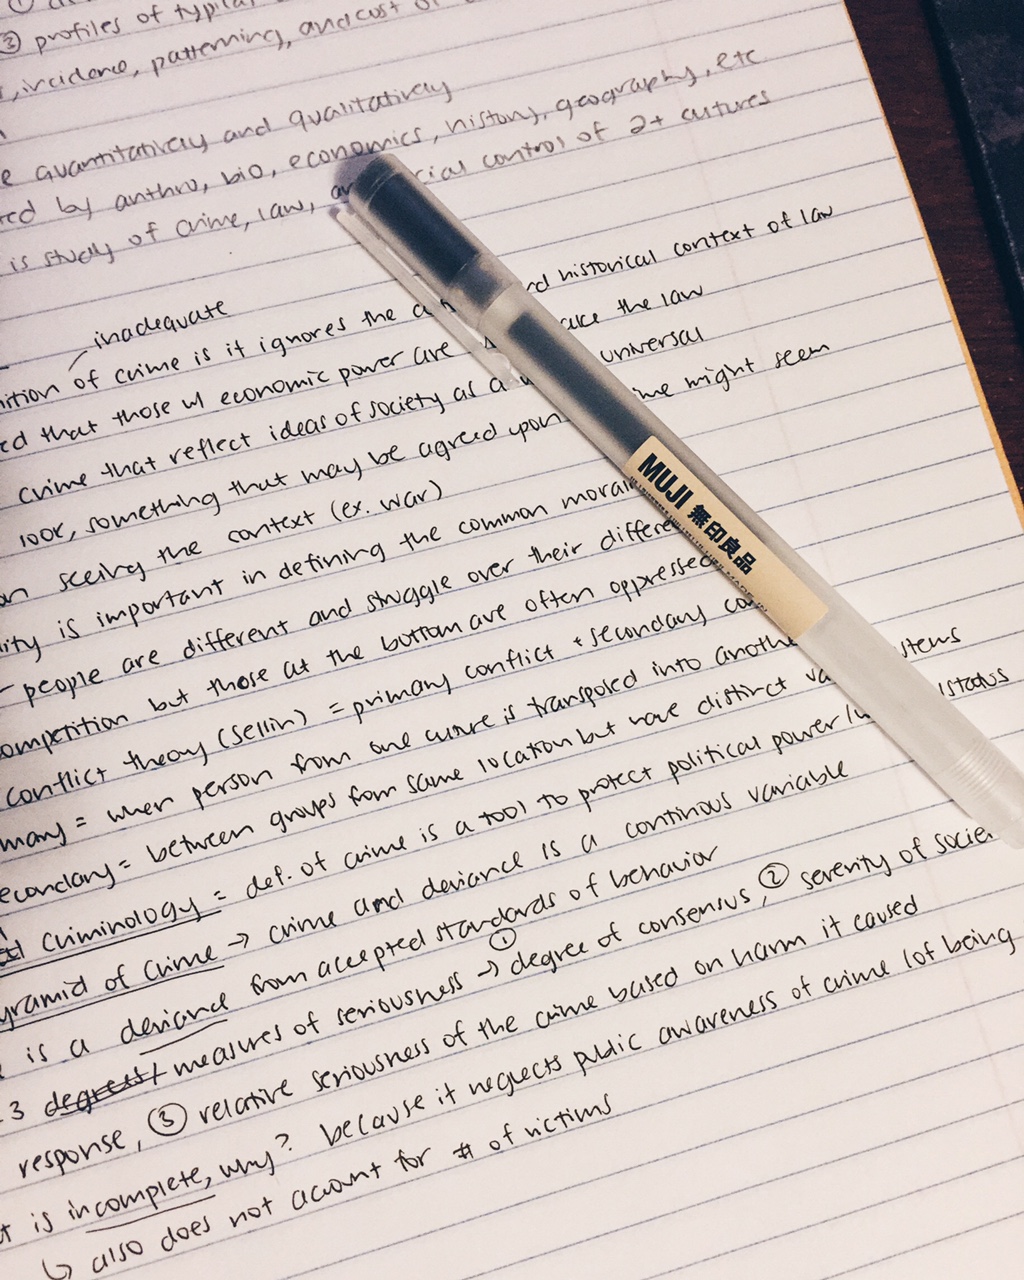 ③ profiles of typical
, incidence, patterning, and cost of
quantitatively and qualitatively
by anthro, bio, economics, history, geography, etc
is study of crime, law, control of 2+ cutures
inadequate
of crime is it ignores the historical context of law
that those w/ economic power are the law
crime that reflect ideas of society as a universal
look, something that may be agreed upon might seem
seeing the context (ex. war)
is important in defining the common
people are different and struggle over their
but those at the bottom are often oppressed
conflict theory (Sellin) = primary conflict + secondary
= when person from one culture is transposed into
= between groups from same location but have distinct
criminology = def. of crime is a tool to protect political power status
of crime → crime and deviance is a continous variable
is a deviance from accepted standards of behavior
3 measures of seriousness → ① degree of consensus, ② severity of
response, ③ relative seriousness of the crime based on harm it caused
is incomplete, why? because it neglects public awareness of crime (of being
↳ also does not account for # of victims
MUJI 無印良品